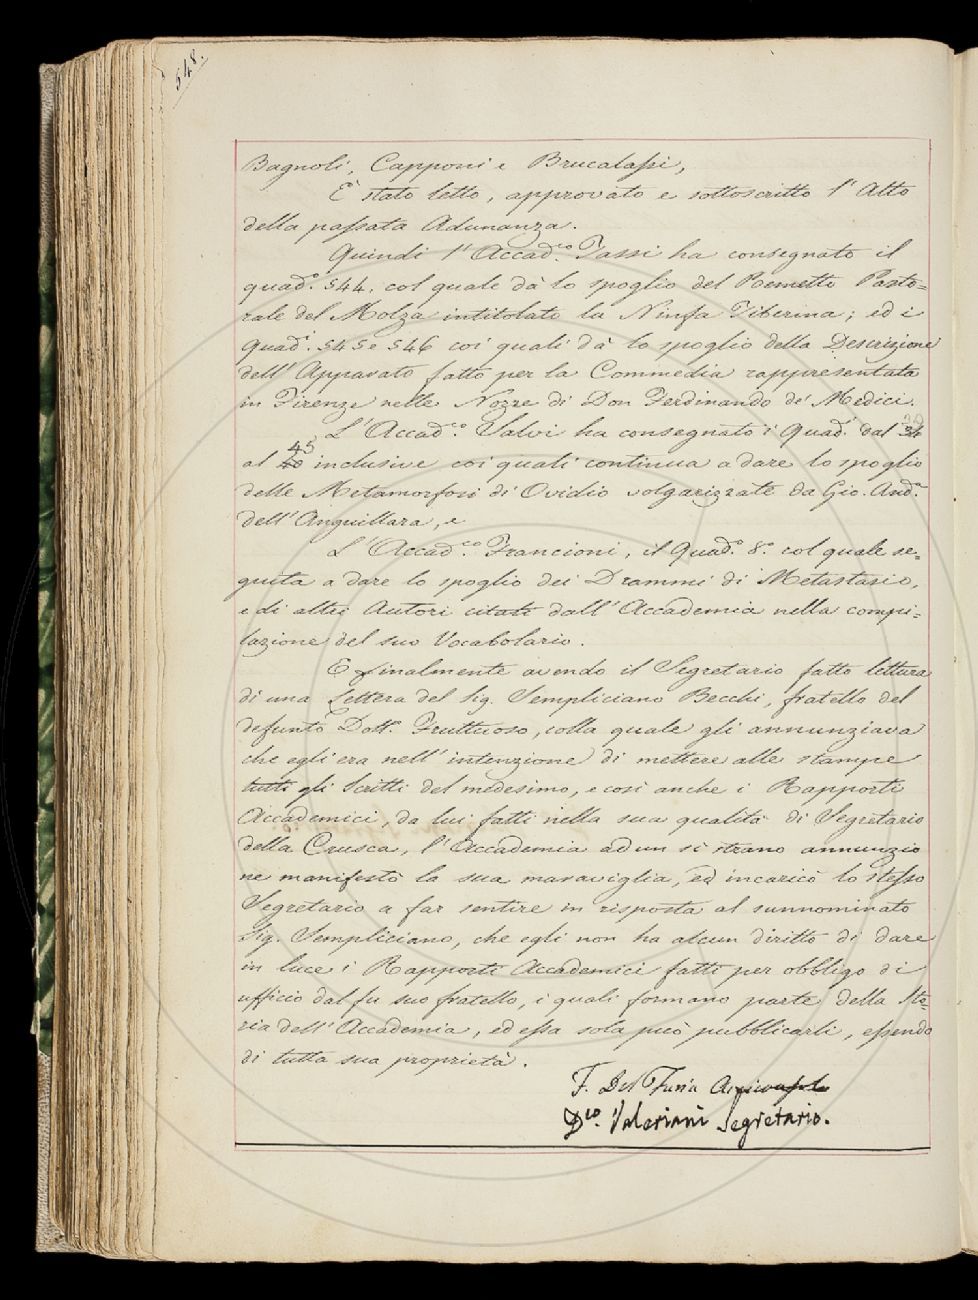 548.
Bagnoli, Capponi e Brucalassi,
È stato letto, approvato e sottoscritto l'Atto
della passata Adunanza.
Quindi l'Accad.co Tassi ha consegnato il
quad.o 544. col quale dà lo spoglio del Poemetto Pasto=
rale del Molza intitolato la Ninfa Tiberina; ed i
Quad.i 545 e 546 coi quali dà lo spoglio della Descrizione
dell'Apparato fatto per la Commedia rappresentata
in Firenze nelle Nozze di Don Ferdinando de' Medici.
L'Accad.co Salvi ha consegnato i Quad.i dal
al 45 inclusive coi quali continua a dare lo spoglio
delle Metamorfosi di Ovidio volgarizzate da Gio. And.a
dell'Anguillara, e
L'Accad.co Francioni, il Quad.o 8.o col quale se=
guita a dare lo spoglio dei Drammi di Metastasio,
e di altri Autori citati dall'Accademia nella compi=
lazione del suo Vocabolario.
E finalmente avendo il Segretario fatto lettura
di una Lettera del Sig. Sempliciano Becchi, fratello del
defunto Dott. Fruttuoso, colla quale gli annunziava
che egli era nell'intenzione di mettere alle stampe
tutti gli Scritti del medesimo, e così anche i Rapporti
Accademici, da lui fatti nella sua qualità di Segretario
della Crusca, l'Accademia ad un sì strano annunzio
ne manifestò la sua maraviglia, ed incaricò lo stesso
Segretario a far sentire in risposta al sunnominato
Sig. Sempliciano, che egli non ha alcun diritto di dare
in luce i Rapporti Accademici fatti per obbligo di
ufficio dal fu suo fratello, i quali formano parte della Sto=
ria dell'Accademia, ed essa sola può pubblicarli, essendo
di tutta sua proprietà.
F. Del Furia Arciconsolo
D.co Valeriani Segretario.